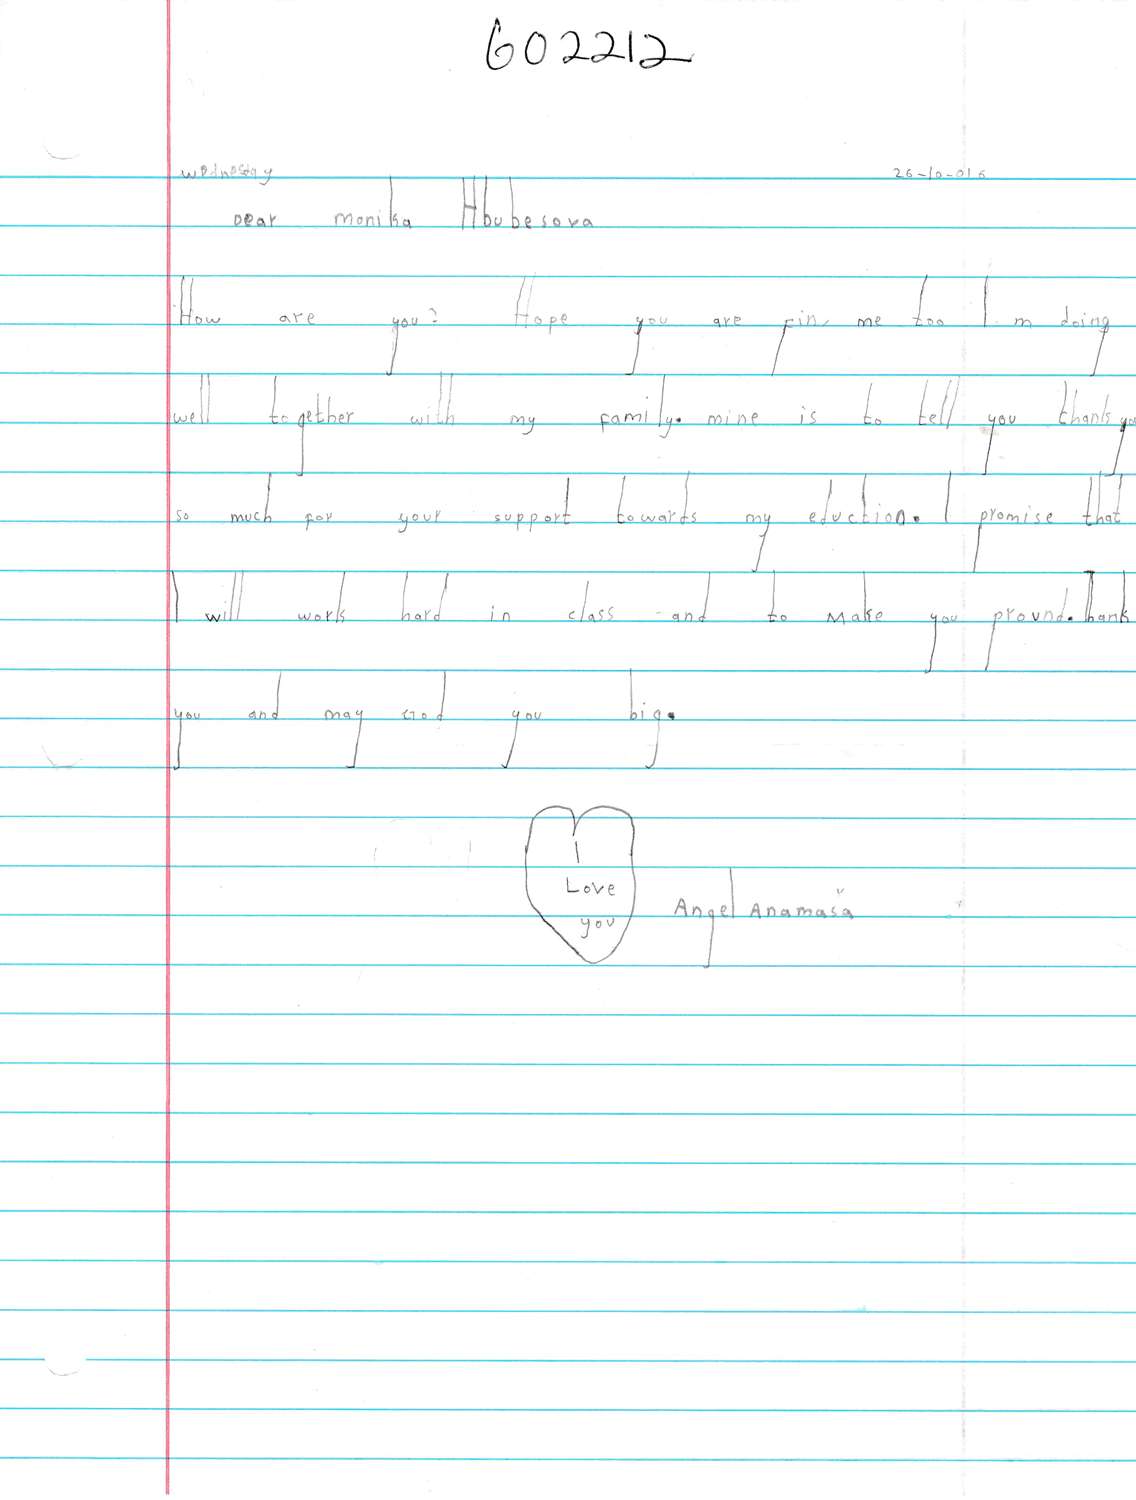 602212
wednesday 26-10-016
Dear monika Hbubesova
How are you? Hope you are fin, me too I m doing
well together with my family. mine is to tell you thank you
so much for your support towards my eduction. I promise that
I will work hard in class and to make you pround. Thank
you and may God you big.
I
Love
you
Angel Anamaša